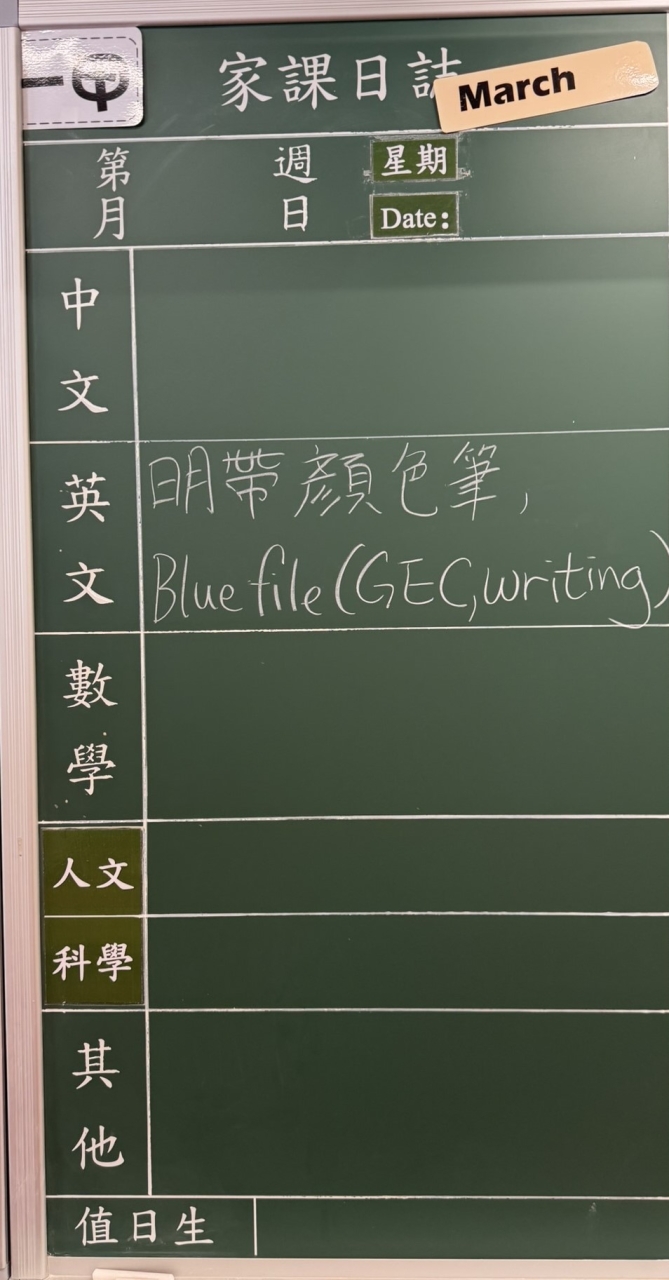 一甲
家課日誌
March
第 週 星期
月 日 Date:
中文
英文
明帶顏色筆,
Blue file (GEC, writing)
數學
人文
科學
其他
值日生